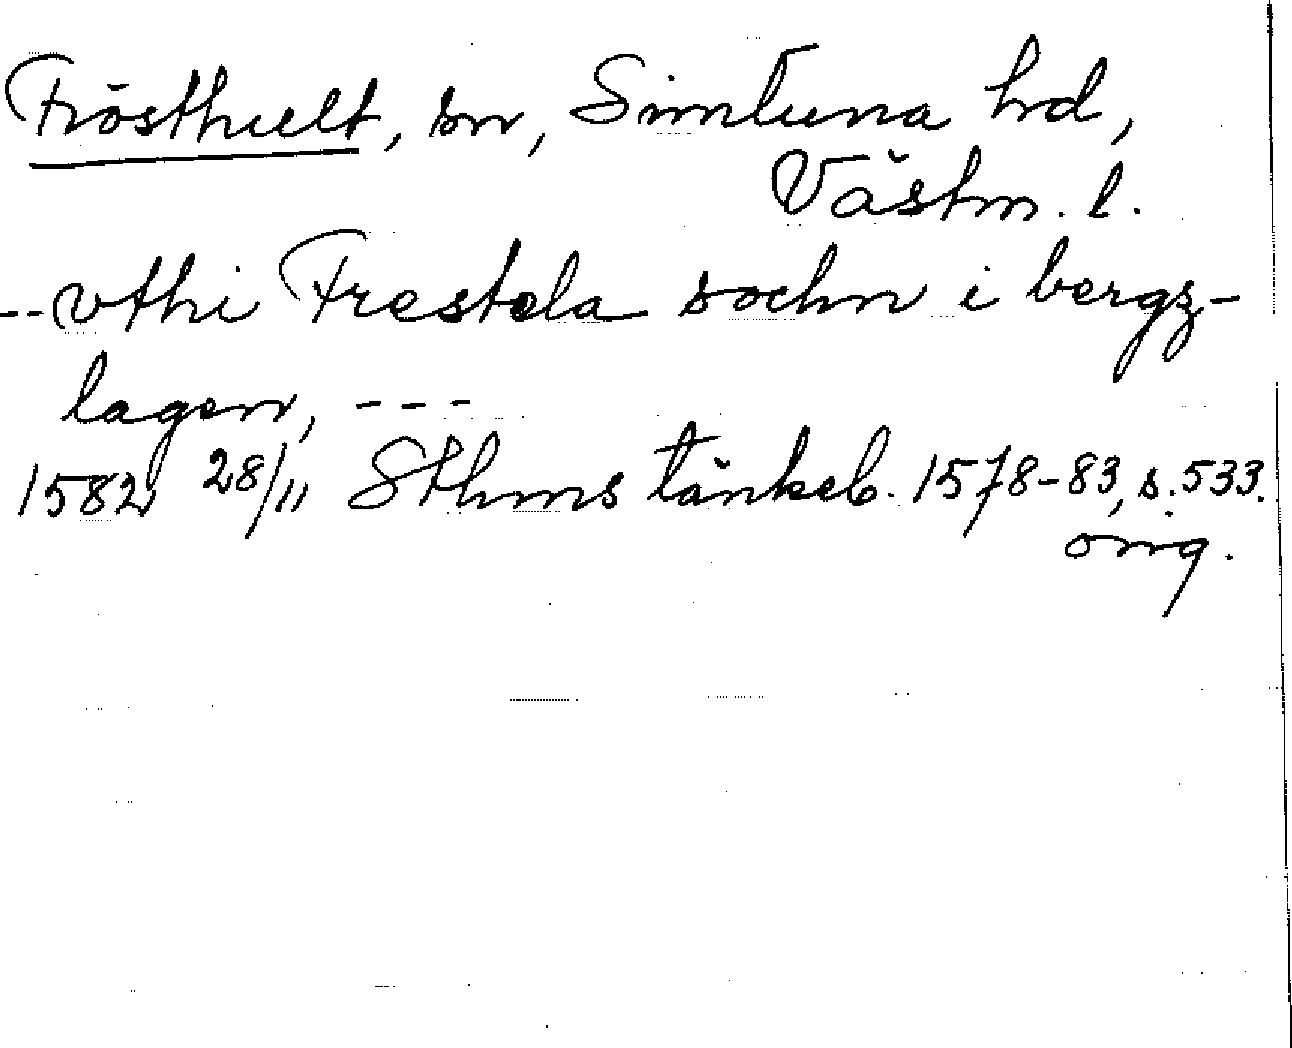 Frösthult, sn, Simtuna hd,
Västm. l.
--vthi Frestela sochn i bergz-
lagen, ---
1582 28/11 Sthms tänkeb. 1578-83, s. 533.
orig.